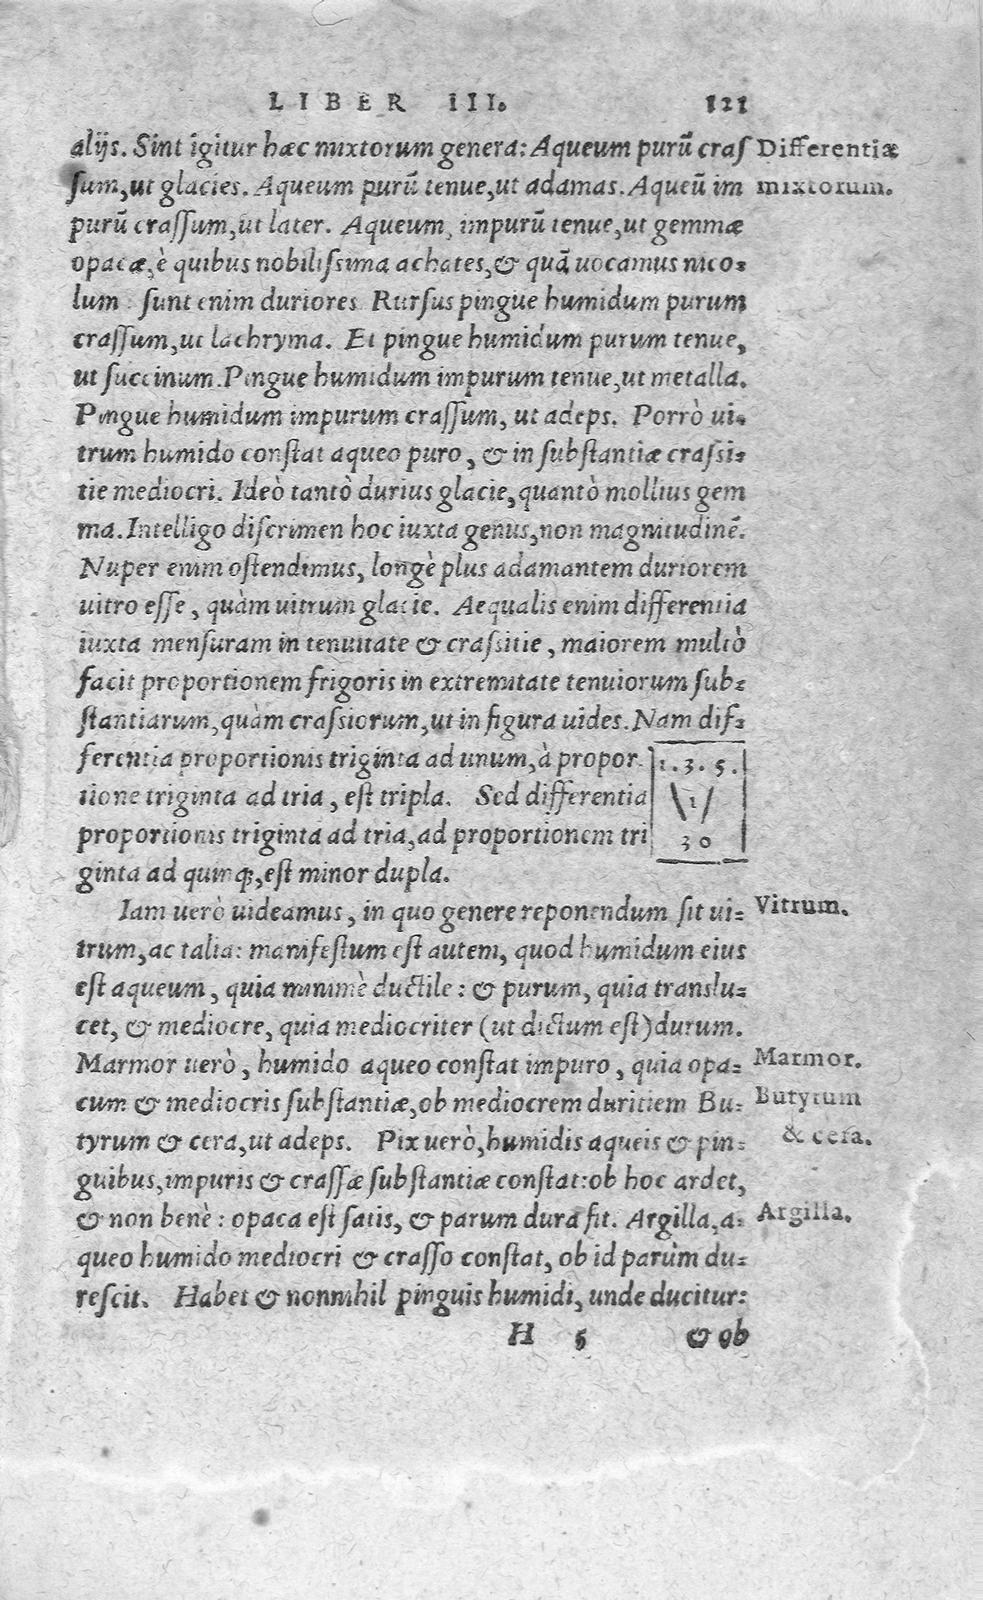 LIBER III. 121
alijs. Sint igitur hæc mixtorum genera: Aqueum purũ cras Differentiæ
sum, ut glacies. Aqueum purũ tenue, ut adamas. Aqueũ im mixtorum.
purũ crassum, ut later. Aqueum, impurũ tenue, ut gemmæ
opacæ, è quibus nobilissima achates, & quã uocamus nico-
lum: sunt enim duriores. Rursus pingue humidum purum
crassum, ut lachryma. Et pingue humidum purum tenue,
ut succinum. Pingue humidum impurum tenue, ut metalla.
Pingue humidum impurum crassum, ut adeps. Porrò ui-
trum humido constat aqueo puro, & in substantiæ crassi-
tie mediocri. Ideò tantò durius glacie, quantò mollius gem
ma. Intelligo discrimen hoc iuxta genus, non magnitudinẽ.
Nuper enim ostendimus, longè plus adamantem duriorem
uitro esse, quàm uitrum glacie. Aequalis enim differentia
iuxta mensuram in tenuitate & crassitie, maiorem multò
facit proportionem frigoris in extremitate tenuiorum sub-
stantiarum, quàm crassiorum, ut in figura uides. Nam dif-
ferentia proportionis triginta ad unum, à propor 1. 3. 5.
tione triginta ad tria, est tripla. Sed differentia \1/
proportionis triginta ad tria, ad proportionem tri 30
ginta ad quinq;, est minor dupla.
Iam uerò uideamus, in quo genere reponendum sit ui- Vitrum.
trum, ac talia: manifestum est autem, quod humidum eius
est aqueum, quia minimè ductile: & purum, quia translu-
cet, & mediocre, quia mediocriter (ut dictum est) durum.
Marmor uerò, humido aqueo constat impuro, quia opa- Marmor.
cum & mediocris substantiæ, ob mediocrem duritiem Bu- Butyrum
tyrum & cera, ut adeps. Pix uerò, humidis aqueis & pin- & cera.
guibus, impuris & crassæ substantiæ constat: ob hoc ardet,
& non benè: opaca est satis, & parum dura fit. Argilla, a- Argilla.
queo humido mediocri & crasso constat, ob id parùm du-
rescit. Habet & nonnihil pinguis humidi, unde ducitur:
H 5 & ob